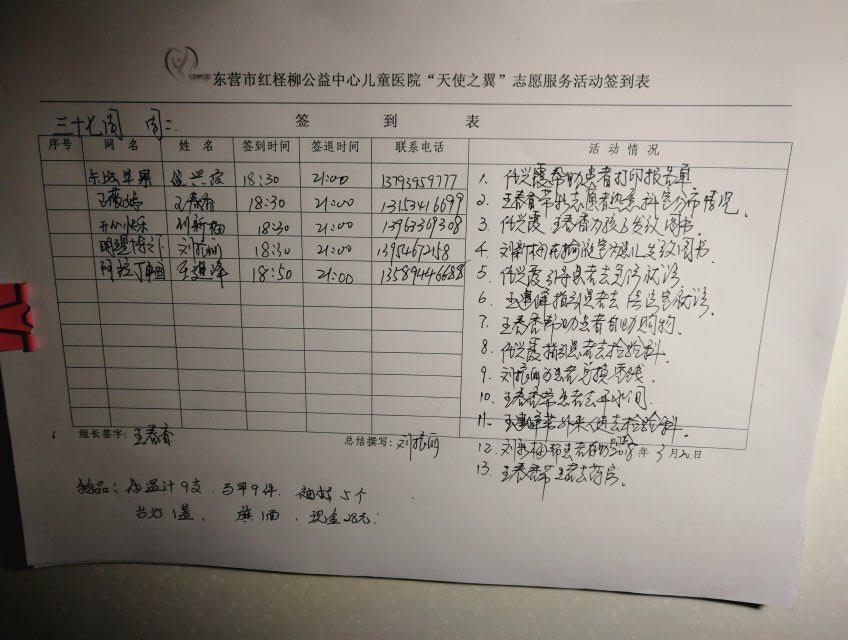 东营市红柽柳公益中心儿童医院“天使之翼”志愿服务活动签到表
三十七周 周二
签 到 表
序号 网 名 姓 名 签到时间 签退时间 联系电话 活 动 情 况
苹果 任兴霞 18:30 21:00 13793959777
王薇婷 王春香 18:30 21:00 13153416699
开心快乐 刘新梅 18:30 21:00 13963369308
刘振丽 18:30 21:00 13954672158
阿拉丁神国 18:50 21:00 13589446688
1. 任兴霞帮助患者打印报告单
2. 王春香带新志愿者熟悉科室分布情况.
3. 任兴霞 王春香为孩子发放图书.
4. 刘新梅在输液室为患儿发放图书.
5. 任兴霞引导患者去急诊就诊.
6. 指引患者去 就诊.
7. 王春香帮助患者自助购物.
8. 任兴霞指引患者去检验科.
9. 刘振丽为患者兑换零钱.
10. 王春香带患者去开水间.
11. 带外来人员去检验科.
12. 刘新梅帮患者
13. 王春香带患者去药房.
组长签字: 王春香 总结撰写: 刘振丽 2018年 3月20日
物品: 体温计9支. 马甲9件. 袖标5个
台灯1盏. 旗1面. 现金28元.